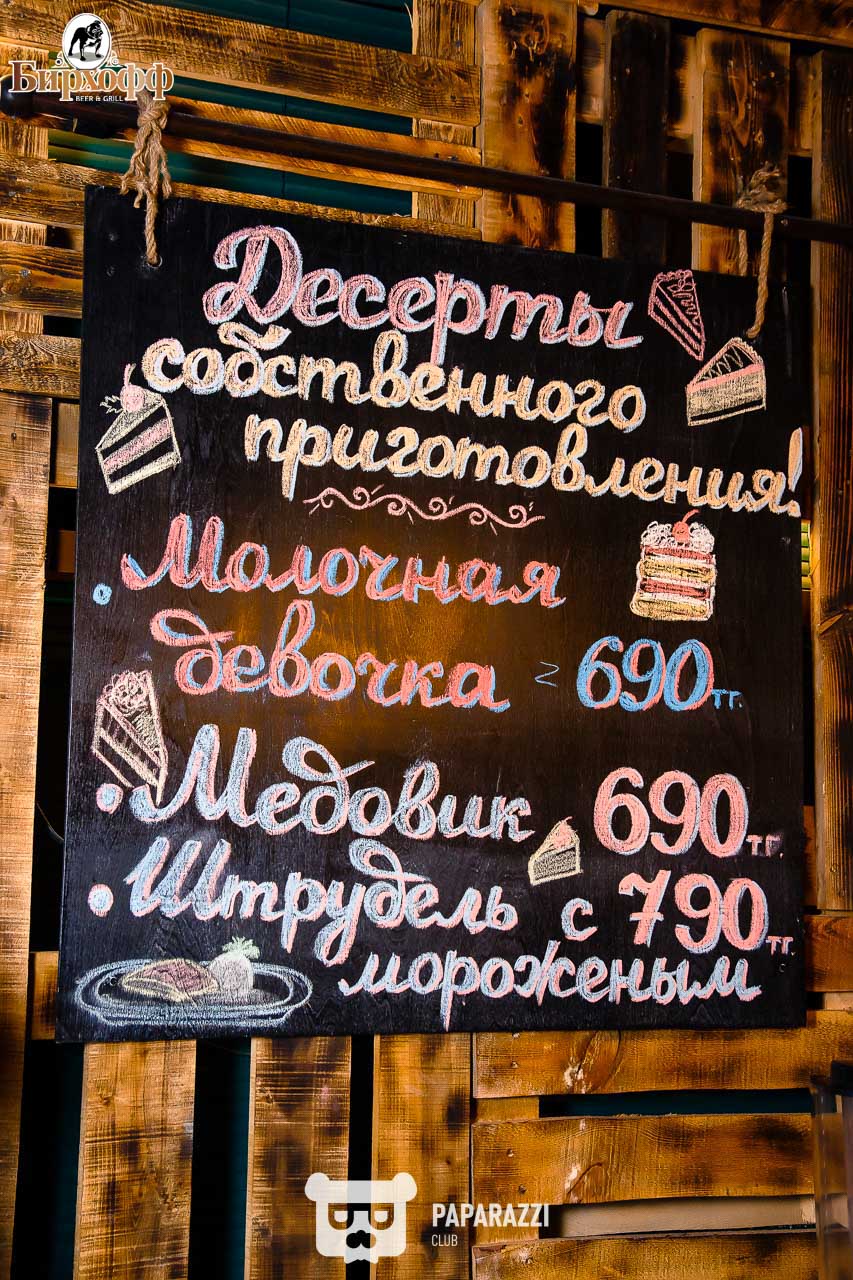 Бирхофф
BEER & GRILL
Десерты
собственного
приготовления!
• Молочная
девочка - 690тг.
• Медовик 690тг.
• Штрудель с 790тг.
мороженым
PAPARAZZI
CLUB